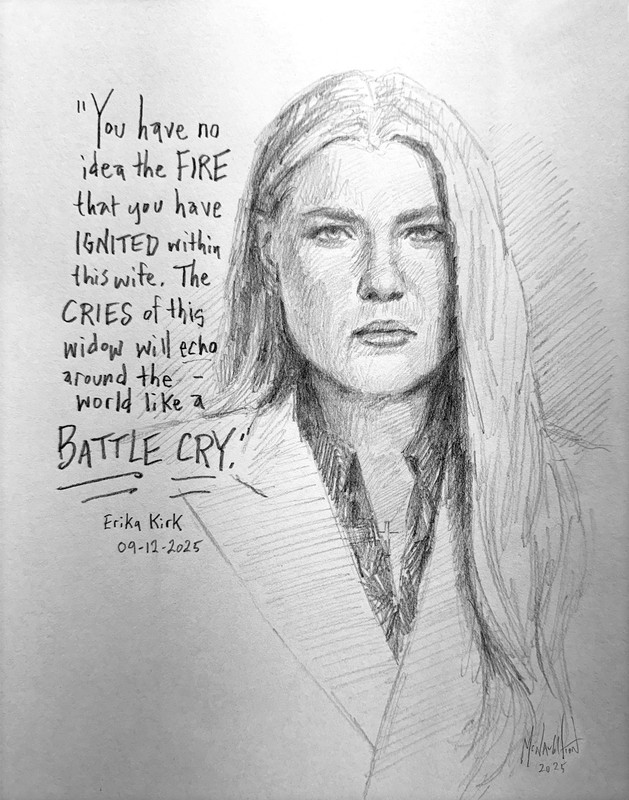 "You have no
idea the FIRE
that you have
IGNITED within
this wife. The
CRIES of this
widow will echo
around the -
world like a
BATTLE CRY."
Erika Kirk
09-12-2025
McNaughton
2025